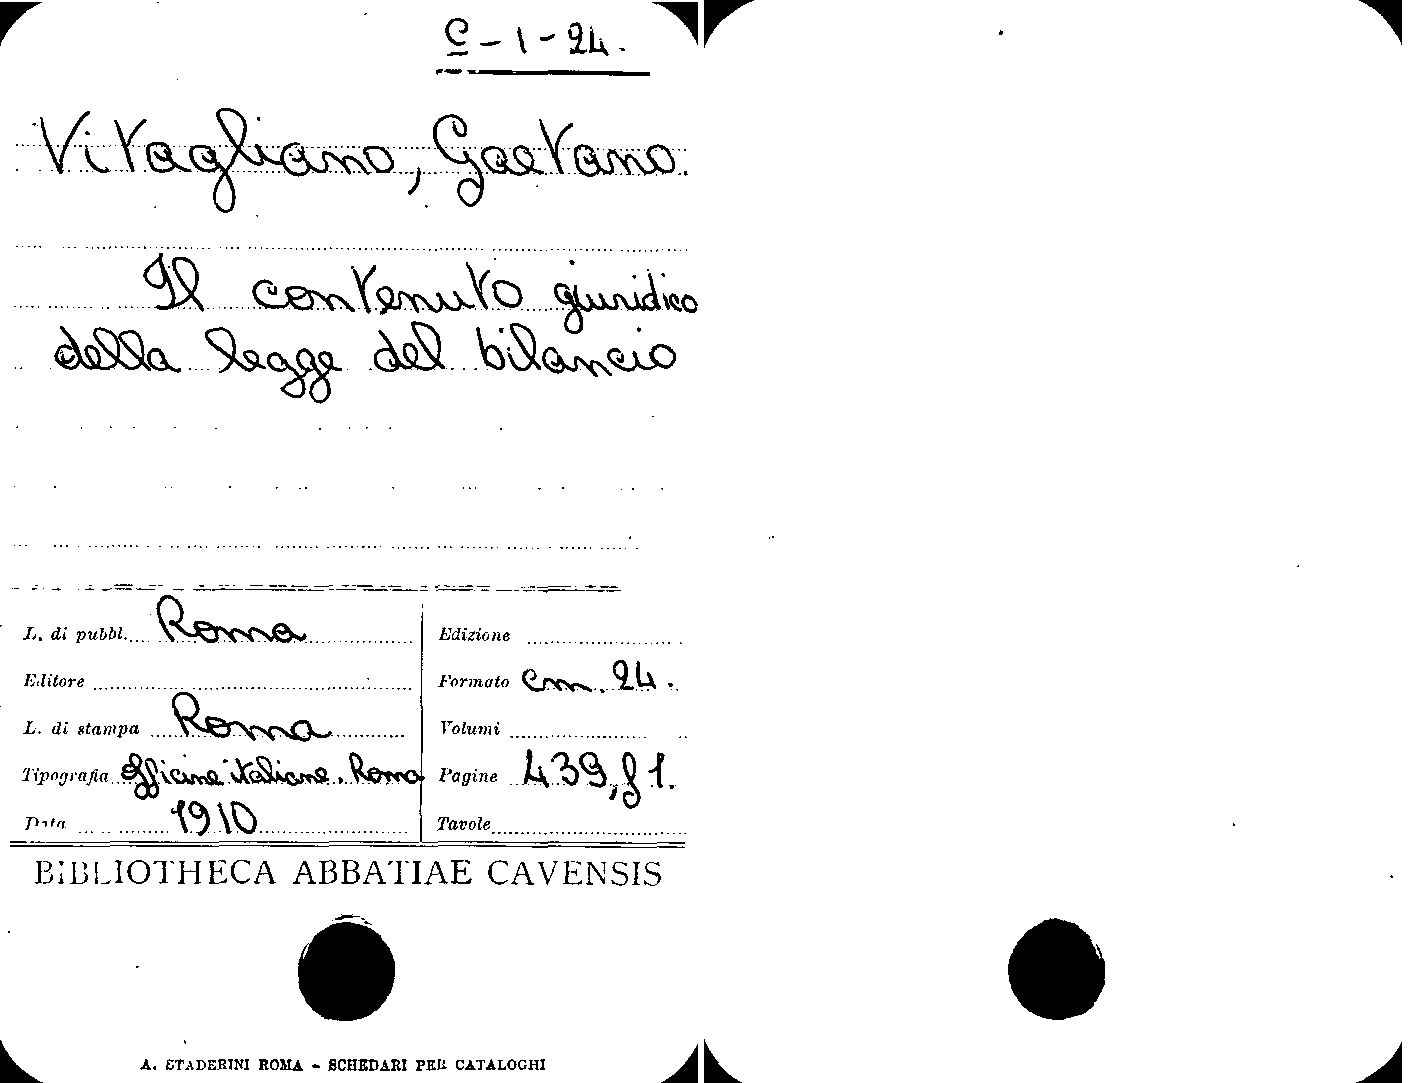 C-1-24.
Vitagliano, Gaetano.
Il contenuto giuridico
della legge del bilancio
L. di pubbl. Roma
Edizione
Editore
Formato cm. 24.
L. di stampa Roma
Volumi
Tipografia Officine italiane. Roma
Pagine 439, f 1.
Data 1910
Tavole
BIBLIOTHECA ABBATIAE CAVENSIS
A. STADERINI ROMA - SCHEDARI PER CATALOGHI